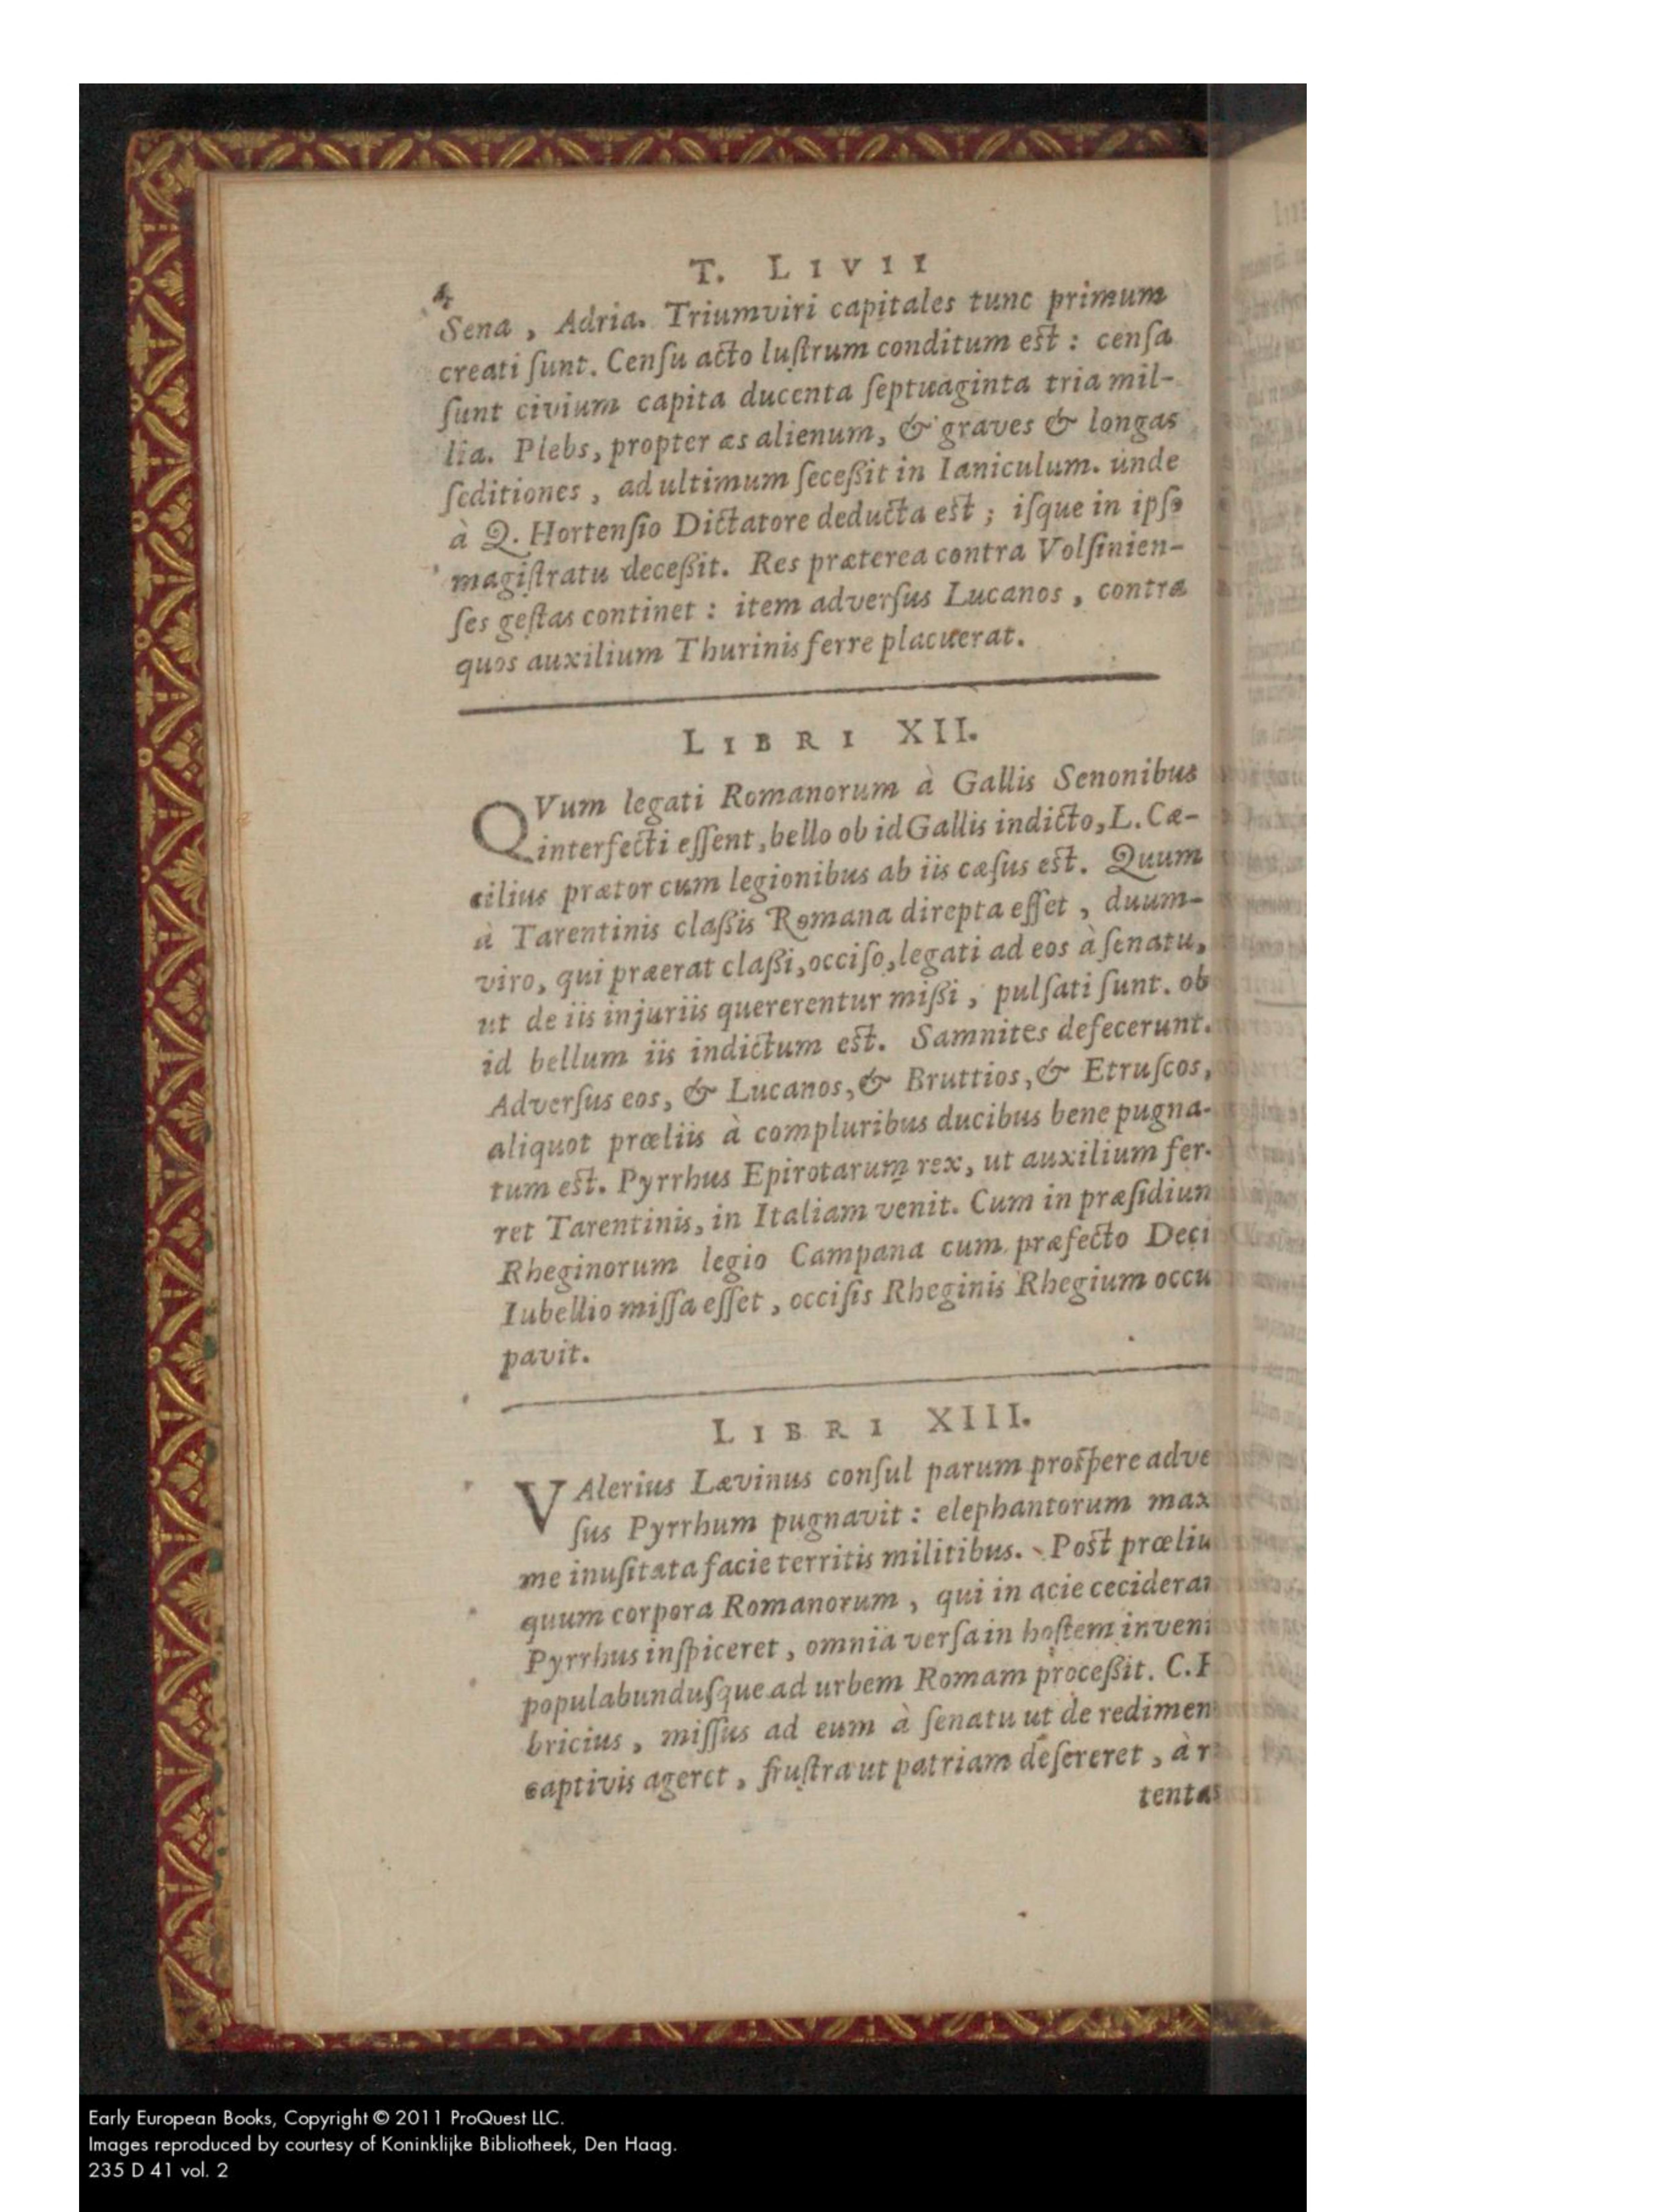 T. LIVII
4
Sena , Adria. Triumviri capitales tunc primum
creati ſunt. Cenſu acto luſtrum conditum eſt : cenſa
ſunt civium capita ducenta ſeptuaginta tria mil-
lia. Plebs, propter æs alienum, & graves & longas
ſeditiones , ad ultimum ſeceßit in Ianiculum. unde
à Q. Hortenſio Dictatore deducta eſt ; iſque in ipſo
magiſtratu deceßit. Res præterea contra Volſinien-
ſes geſtas continet : item adverſus Lucanos , contra
quos auxilium Thurinis ferre placuerat.
LIBRI XII.
QVum legati Romanorum à Gallis Senonibus
interfecti eſſent, bello ob id Gallis indicto, L. Cæ-
cilius prætor cum legionibus ab iis cæſus eſt. Quum
à Tarentinis claßis Romana direpta eſſet , duum-
viro, qui præerat claßi, occiſo, legati ad eos à ſenatu,
ut de iis injuriis quererentur mißi , pulſati ſunt. ob
id bellum iis indictum eſt. Samnites defecerunt.
Adverſus eos, & Lucanos, & Bruttios, & Etruſcos,
aliquot prœliis à compluribus ducibus bene pugna-
tum eſt. Pyrrhus Epirotarum rex, ut auxilium fer-
ret Tarentinis, in Italiam venit. Cum in præſidiun
Rheginorum legio Campana cum præfecto Deci
Iubellio miſſa eſſet , occiſis Rheginis Rhegium occu
pavit.
LIBRI XIII.
VAlerius Lævinus conſul parum proſpere adve
ſus Pyrrhum pugnavit : elephantorum max
me inuſitata facie territis militibus. Poſt prœliu
quum corpora Romanorum , qui in acie ceciderar
Pyrrhus inſpiceret , omnia verſa in hoſtem inveni
populabunduſque ad urbem Romam proceßit. C. F
bricius , miſſus ad eum à ſenatu ut de redimen
captivis ageret , fruſtra ut patriam deſereret , à r
tentas
Early European Books, Copyright © 2011 ProQuest LLC.
Images reproduced by courtesy of Koninklijke Bibliotheek, Den Haag.
235 D 41 vol. 2